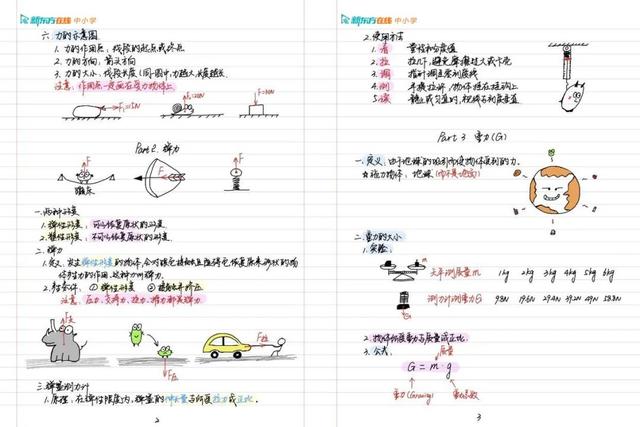 新东方在线 中小学
六. 力的示意图
1. 力的作用点: 线段的起点或终点
2. 力的方向: 箭头方向
3. 力的大小: 线段长度(同一图中,力越大,线段越长)
注意: 作用点一定画在受力物体上
F=20N
Part 2. 弹力
F
F
F
一. 两种形变
1. 弹性形变: 可以恢复原状的形变
2. 塑性形变: 不可以恢复原状的形变
二. 弹力
1. 定义: 发生弹性形变的物体,会对跟它接触且
物体
2. 产生条件: ① 弹性形变 ② 接触
注意: 压力、支持力、拉力、推力都是弹力
F支
F压
三. 弹簧测力计
1. 原理: 在弹性限度内, 弹簧的伸长量与所受拉力成正比.
2
新东方在线 中小学
2. 使用方法
1. 看 量程和分度值
2. 拉 拉几下,避免摩擦过大或卡壳
3. 调 指针调至零刻度线
4. 测 手提拉环,物体挂在挂钩上
5. 读 静止或匀直时, 视线与刻度垂直
Part 3 重力(G)
一. 定义: 由于地球的吸引而使物体受到的力.
☆ 施力物体: 地球
二. 重力的大小
1. 实验:
天平测质量m 1kg 2kg 3kg 4kg 5kg 6kg
测力计测重力G 9.8N 19.6N 29.4N 39.2N 49N 58.8N
2. 物体所受重力与质量成正比.
3. 公式: 质量
G = m · g
重力(Gravity)
3